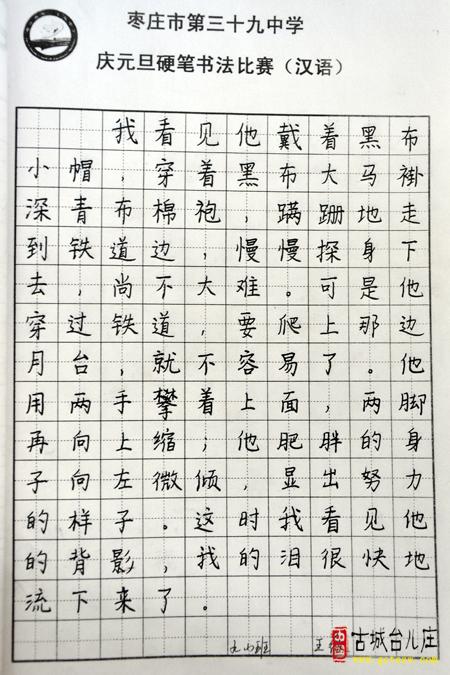 枣庄市第三十九中学
庆元旦硬笔书法比赛（汉语）
我看见他戴着黑布
小帽，穿着黑布大马褂
深青布棉袍，蹒跚地走
到铁道边，慢慢探身下
去，尚不大难。可是他
穿过铁道，要爬上那边
月台，就不容易了。他
用两手攀着上面，两脚
再向上缩；他肥胖的身
子向左微倾，显出努力
的样子。这时我看见他
的背影，我的泪很快地
流下来了。
古城台儿庄